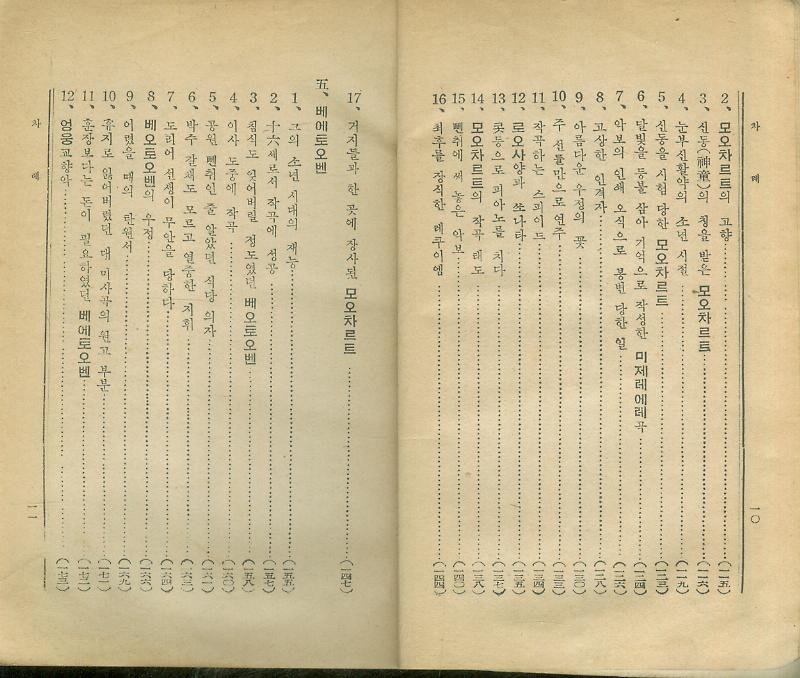 차 례
一〇
2、모오차르트의 고향 (一一五)
3、신동(神童)의 칭을 받은 모오차르트 (一一六)
4、눈부신활약의 소년 시절 (一一九)
5、신동을 시험 당한 모오차르트 (一二三)
6、달빛을 등불 삼아 기억으로 작성한 미제레에레곡 (一二四)
7、악보의 인쇄 오식으로 봉변 당한 일 (一二六)
8、고상한 인격자 (一二八)
9、아름다운 우정의 꽃 (一三〇)
10、주선물만으로 연주 (一三三)
11、작곡하는 스피이드 (一三四)
12、로오사양과 쏘나타 (一三五)
13、콧등으로 피아노를 치다 (一三七)
14、모오차르트의 작곡 태도 (一三八)
15、뻰취에 써 놓은 악보 (一四〇)
16、최후를 장식한 레쿠이엠 (一四四)
17、거지들과 한 곳에 장사된 모오차르트 (一四七)
五、베에토오벤
1、그의 소년 시대의 재능 (一五五)
2、十六세로서 작곡에 성공 (一五七)
3、침식도 잊어버릴 정도였던 베오토오벤 (一五八)
4、이사 도중에 작곡 (一六〇)
5、공원 뻰취인 줄 알았던 식당 의자 (一六一)
6、박수 갈채도 모르고 열중한 지휘 (一六三)
7、도리어 선생이 무안을 당하다 (一六四)
8、베오토오벤의 우정 (一六六)
9、어렸을 때의 탄원서 (一六九)
10、휴지로 잃어버렸던 대 미사곡의 원고 부분 (一七一)
11、훈장보다는 돈이 필요하였던 베에토오벤 (一七二)
12、영웅교향악 (一七三)
차 례
一一